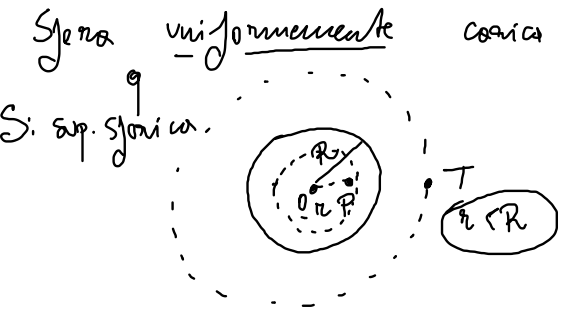 Sfera uniformemente carica
q
S: sup. sferica.
R
O r P
T
r < R